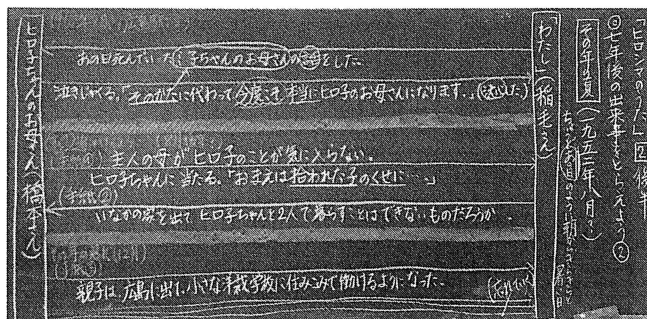 「ヒロシマのうた」② 後半
◎七年後の出来事をとらえよう②
その年の夏(一九五二年八月)
ちょうどあの日のように朝からぎらぎらと暑い日
「わたし」(稲毛さん)
あの日死んでいたミ子ちゃんのお母さんの話をした。
泣きじゃくる。「そのかたに代わって今度こそ、本当にヒロ子のお母さんになります。」(決心した)
主人の母がヒロ子のことが気に入らない。
ヒロ子ちゃんに当たる。「おまえは拾われた子のくせに…。」
(手紙②)
いなかの家を出てヒロ子ちゃんと2人で暮らすことはできないものだろうか。
(12月)
親子は、広島に出て、小さな洋裁学校に住みこみで働けるようになった。
ヒロ子ちゃんのお母さん(橋本さん)